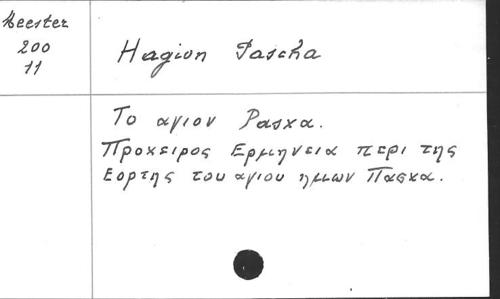 Meester
200
11
Hagion Pascha
Το αγιον Pasxa.
Προχειρος Ερμηνεια περι της
Εορτης του αγιου ημων Πασχα.